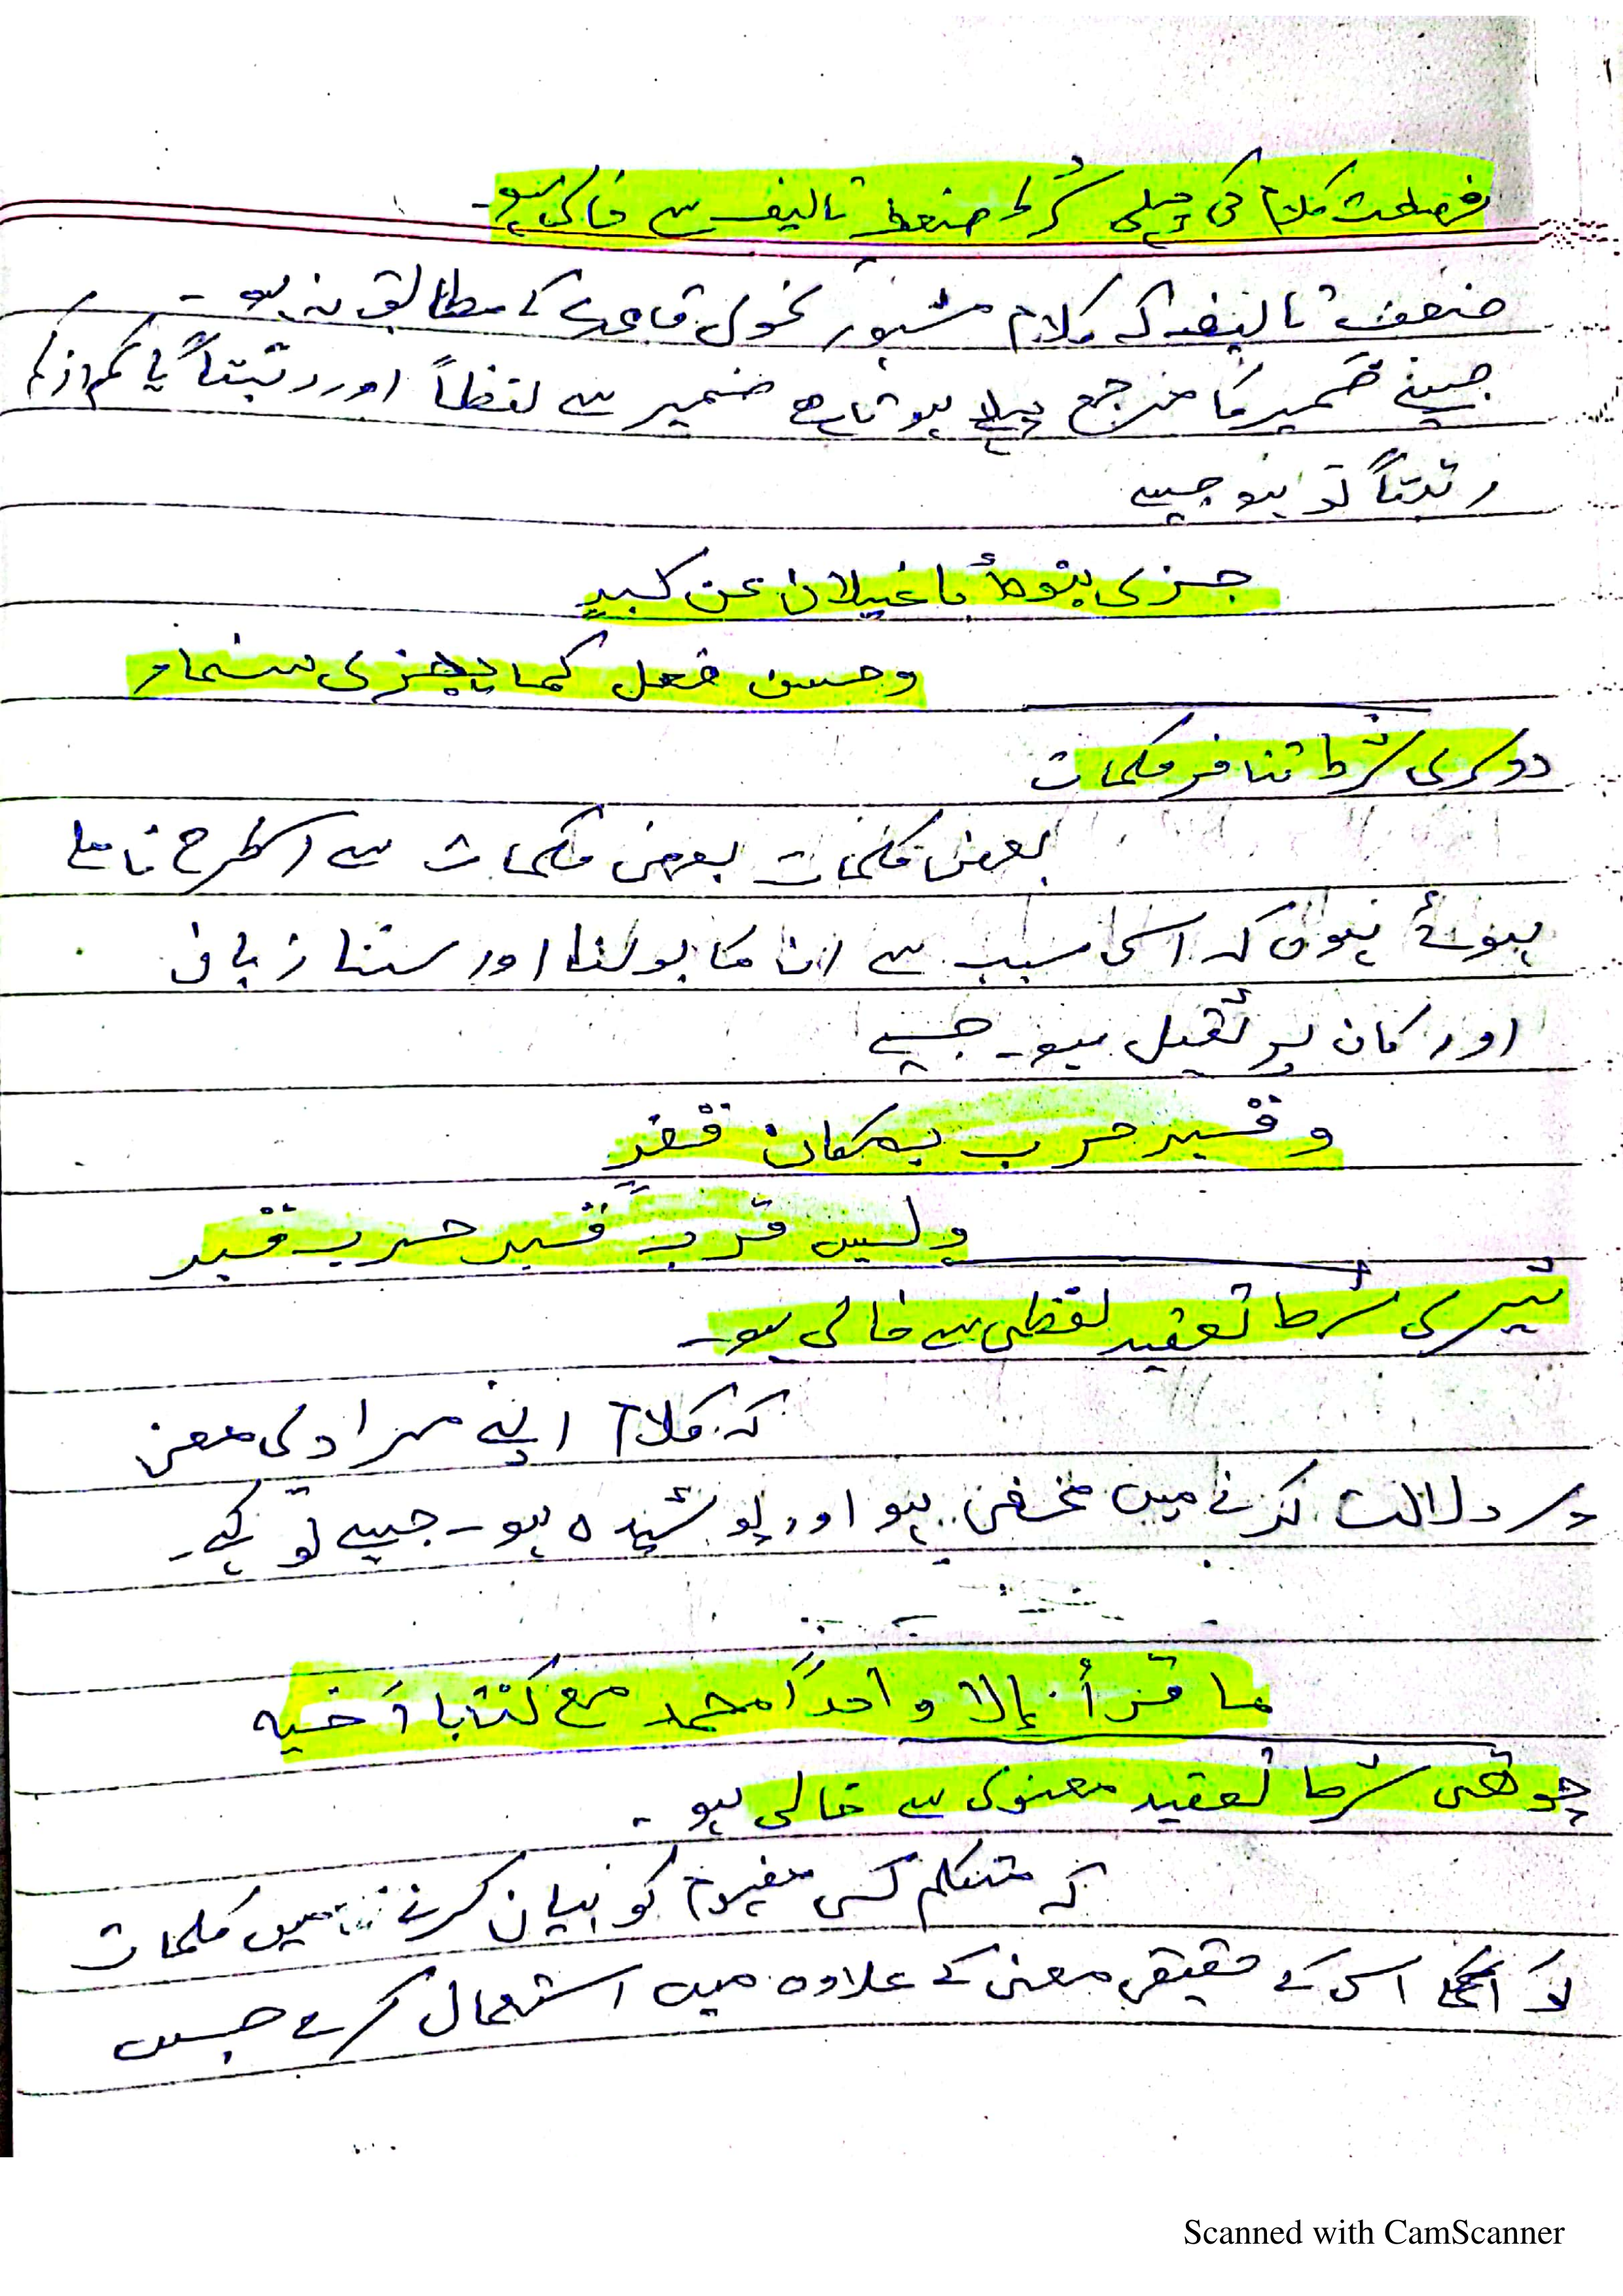 فصاحت کلام کی پہلی شرط ضعف تالیف سے خالی ہو۔
ضعف تالیف کہ کلام مشہور نحوی قاعدے کے مطابق نہ ہو۔
جیسے ضمیر کا مرجع پہلے ہوتا ہے ضمیر سے لفظاً اور رتبتاً یا کم از کم
رتبتاً تو ہو جیسے
جزی بنوہ أبا غیلان عن کبرٍ
وحسن فعل کما یجزی سنمار
دوسری شرط تنافر کلمات
بعض کلمات بعض کلمات سے اسطرح ملے
ہوئے ہوں کہ اسی سبب سے ان کا بولنا اور سننا زبان
اور کان پر ثقیل ہو۔ جیسے
وقبر حرب بمکان قفرٍ
ولیس قرب قبر حرب قبر
تیسری شرط تعقید لفظی سے خالی ہو۔
کہ کلام اپنے مرادی معنی
پر دلالت کرنے میں مخفی ہو اور پوشیدہ ہو۔ جیسے تو کہے۔
ما قرأ إلا واحداً محمد مع کتابا أخیه
چوتھی شرط تعقید معنوی سے خالی ہو۔
کہ متکلم کسی مفہوم کو بیان کرنے میں کلمات
کو اس کے حقیقی معنی کے علاوہ میں استعمال کرے جیسے
Scanned with CamScanner